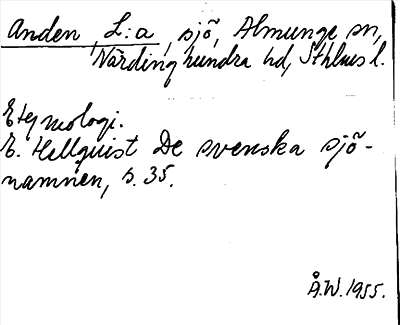 Anden, L:a, sjö, Almunge sn,
Närdinghundra hd, Sthlms l.
Etymologi.
E. Hellquist De svenska sjö-
namnen, s. 35.
Å.W. 1955.